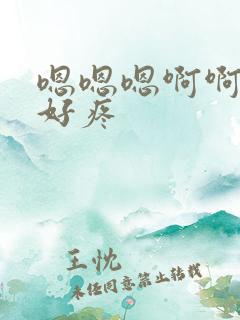 嗯嗯嗯啊啊
好疼
王忱
未经同意禁止转载